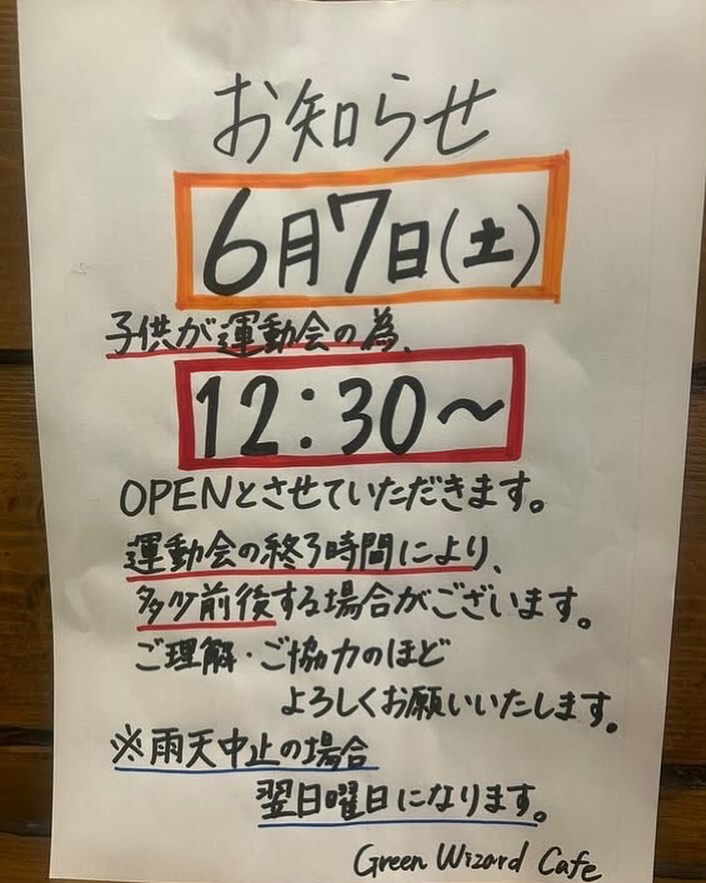 お知らせ
6月7日(土)
子供が運動会の為、
12:30〜
OPENとさせていただきます。
運動会の終了時間により、
多少前後する場合がございます。
ご理解・ご協力のほど
よろしくお願いいたします。
※雨天中止の場合
翌日曜日になります。
Green Wizard Cafe